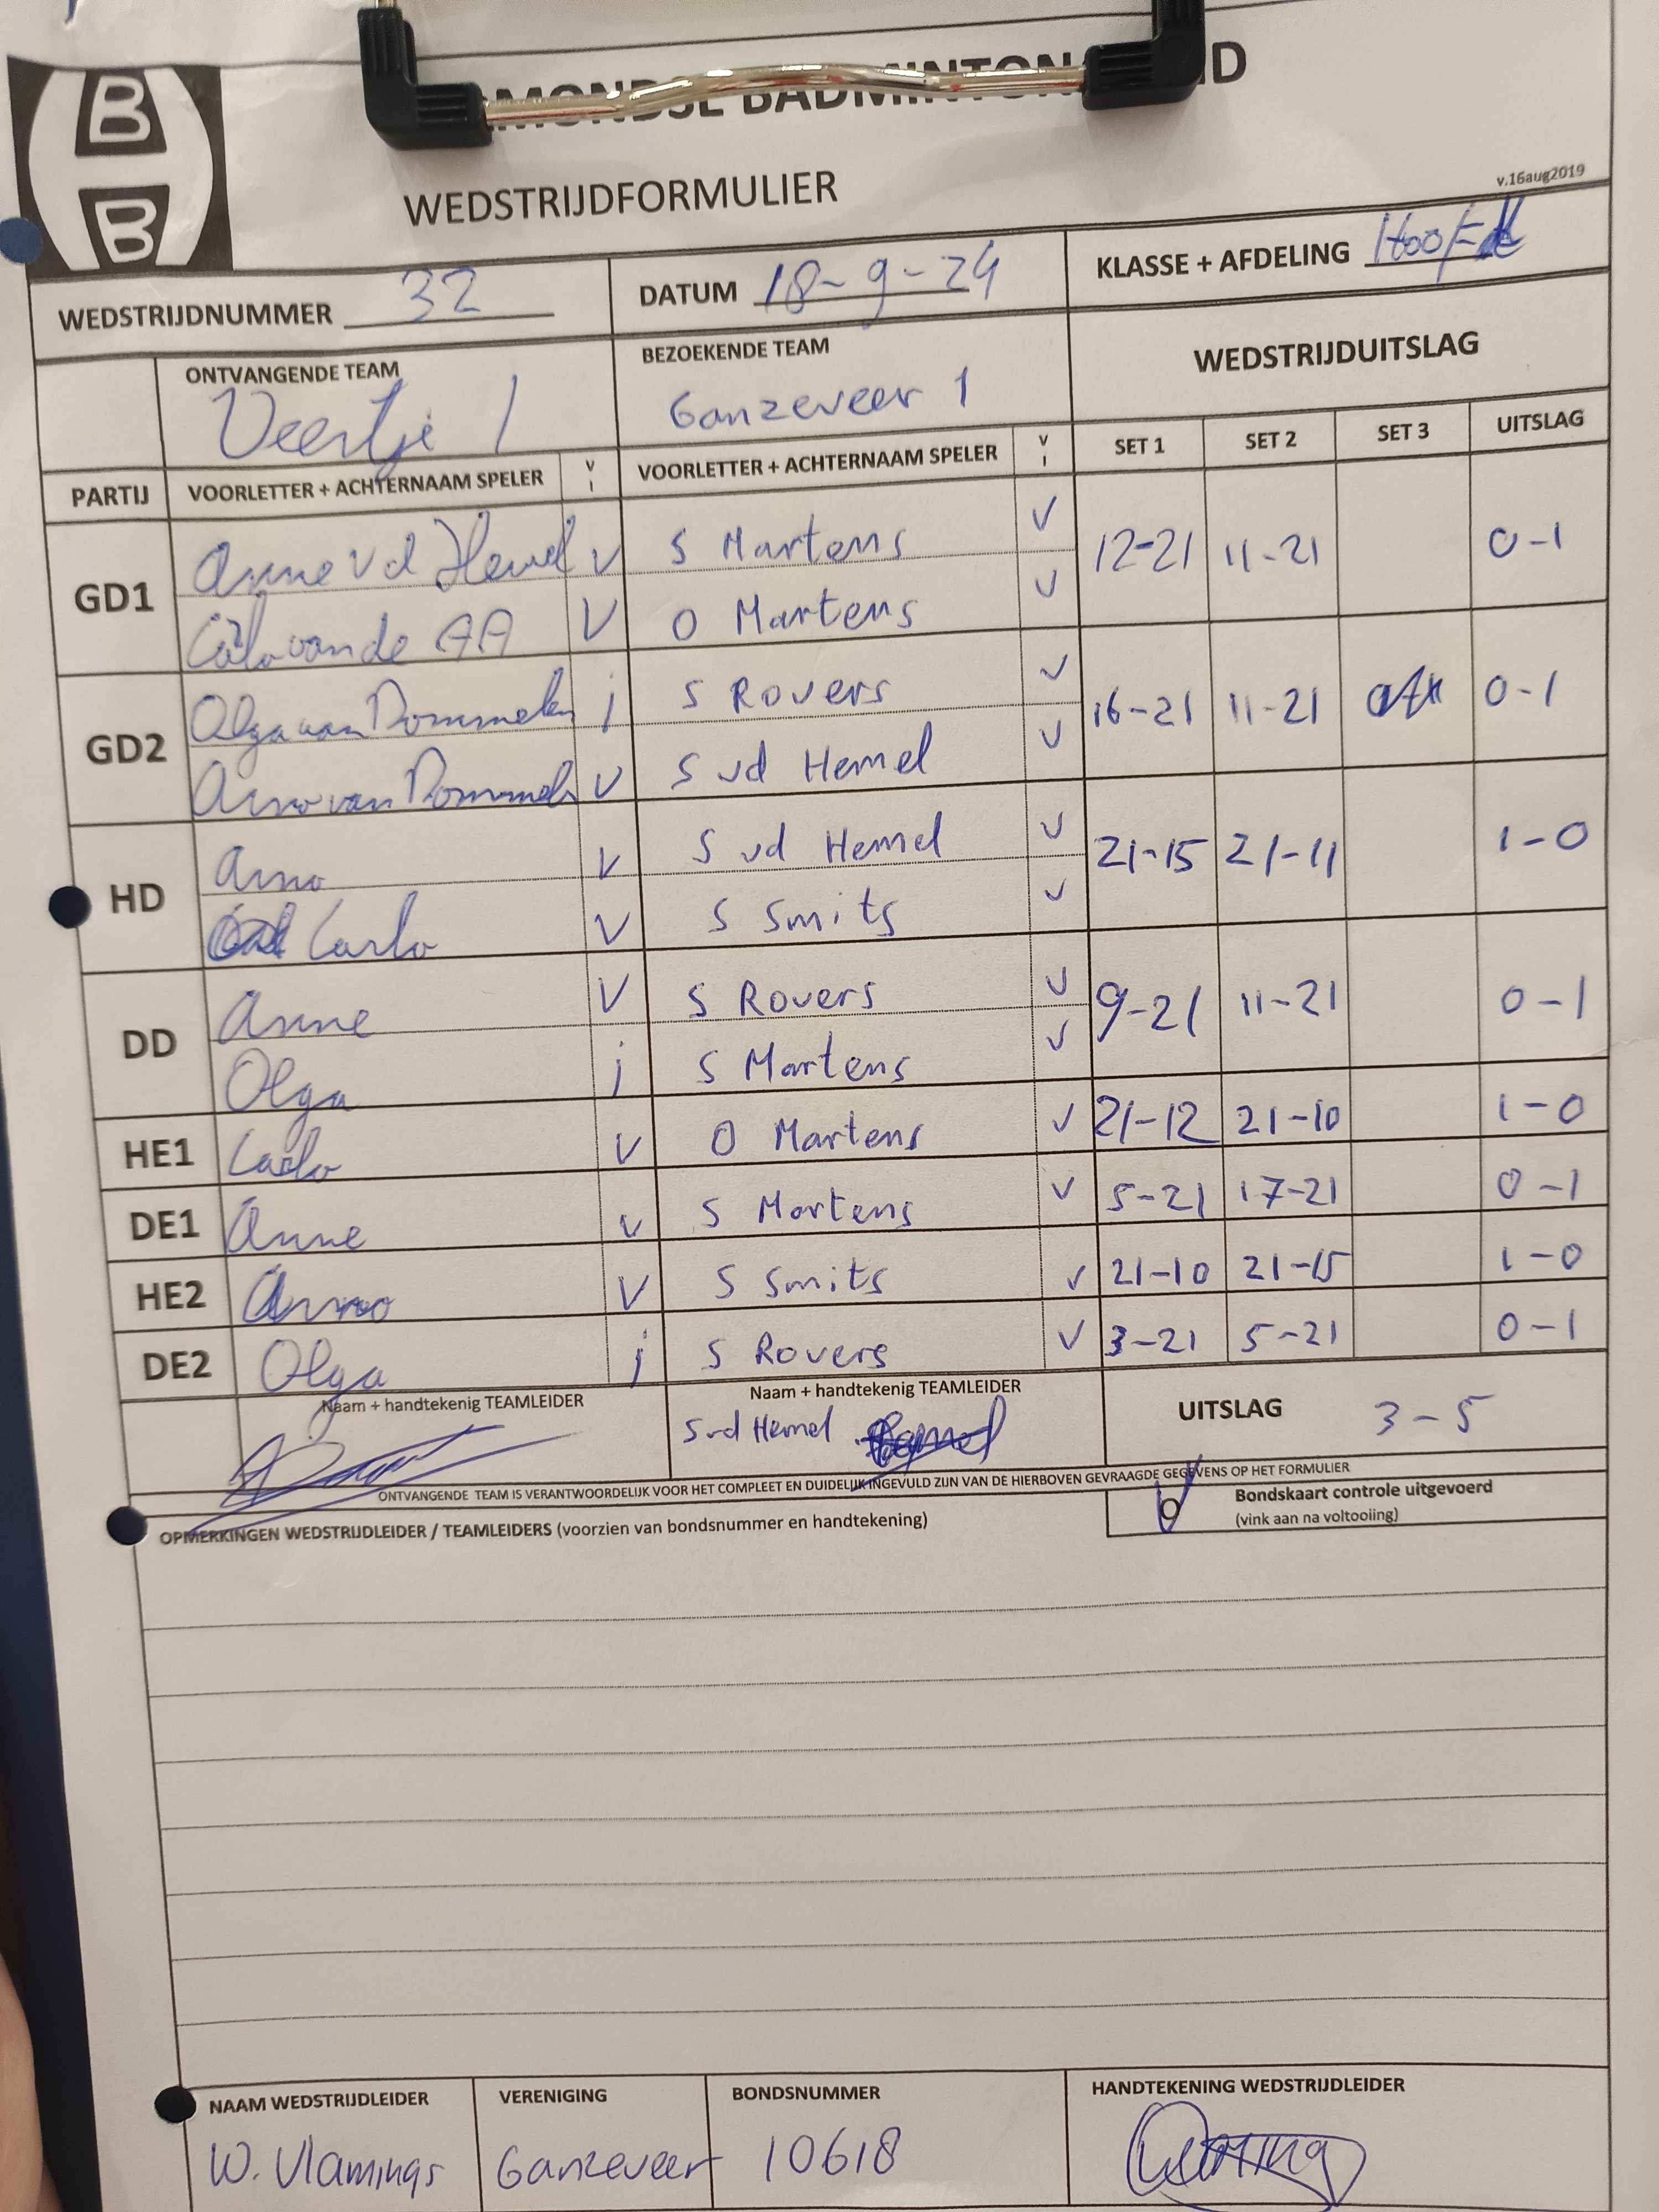 B
B
MONDSE BADMINTON
WEDSTRIJDFORMULIER
v.16aug2019
WEDSTRIJDNUMMER 32 DATUM 18-9-24 KLASSE + AFDELING Hoofd
ONTVANGENDE TEAM BEZOEKENDE TEAM WEDSTRIJDUITSLAG
Veertje 1 Ganzeveer 1
PARTIJ VOORLETTER + ACHTERNAAM SPELER V I VOORLETTER + ACHTERNAAM SPELER V I SET 1 SET 2 SET 3 UITSLAG
GD1 Anne vd Heuvel V S Martens V 12-21 11-21 0-1
Carlo van de AA V O Martens V
GD2 Olga van Dommelen j S Rovers V 16-21 11-21 0-1
Arno van Dommelen V S vd Hemel V
HD Arno V S vd Hemel V 21-15 21-11 1-0
Carlo V S Smits V
DD Anne V S Rovers V 9-21 11-21 0-1
Olga j S Martens V
HE1 Carlo V O Martens V 21-12 21-10 1-0
DE1 Anne V S Martens V 5-21 17-21 0-1
HE2 Arno V S Smits V 21-10 21-15 1-0
DE2 Olga j S Rovers V 3-21 5-21 0-1
Naam + handtekenig TEAMLEIDER Naam + handtekenig TEAMLEIDER UITSLAG 3-5
S vd Hemel
ONTVANGENDE TEAM IS VERANTWOORDELIJK VOOR HET COMPLEET EN DUIDELIJK INGEVULD ZIJN VAN DE HIERBOVEN GEVRAAGDE GEGEVENS OP HET FORMULIER
OPMERKINGEN WEDSTRIJDLEIDER / TEAMLEIDERS (voorzien van bondsnummer en handtekening)
Bondskaart controle uitgevoerd
(vink aan na voltooiing)
NAAM WEDSTRIJDLEIDER VERENIGING BONDSNUMMER HANDTEKENING WEDSTRIJDLEIDER
W. Vlamings Ganzeveer 10618